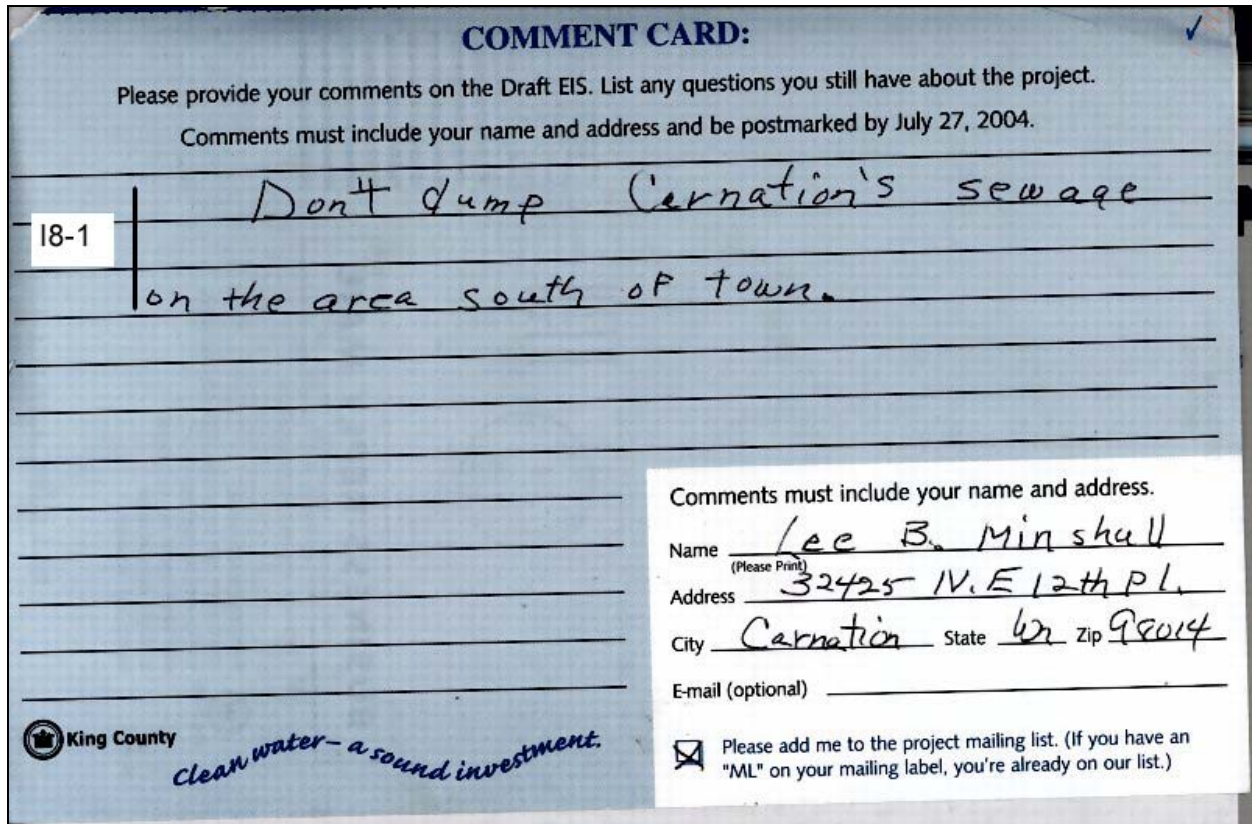 COMMENT CARD:
✓
Please provide your comments on the Draft EIS. List any questions you still have about the project.
Comments must include your name and address and be postmarked by July 27, 2004.
Don't dump Carnation's sewage
I8-1
on the area south of town.
Comments must include your name and address.
Name Lee B. Minshall
(Please Print)
Address 32425 N.E 12th Pl.
City Carnation State Wa Zip 98014
E-mail (optional)
King County
Clean water – a sound investment.
Please add me to the project mailing list. (If you have an
"ML" on your mailing label, you're already on our list.)